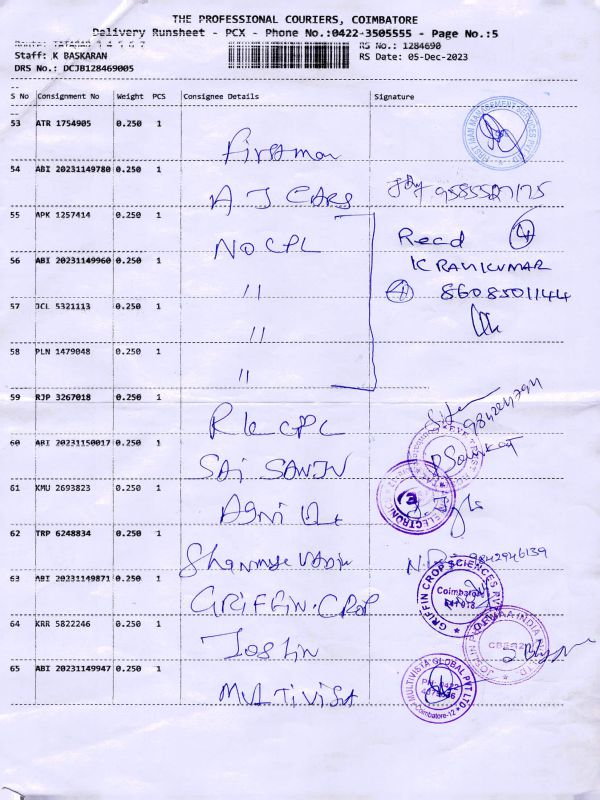 THE PROFESSIONAL COURIERS, COIMBATORE
Delivery Runsheet - PCX - Phone No.:0422-3505555 - Page No.:5
RS No.: 1284690
Staff: K BASKARAN
RS Date: 05-Dec-2023
DRS No.: DCJB128469005
S No Consignment No Weight PCS Consignee Details Signature
53 ATR 1754905 0.250 1
FIRST MAN MANAGEMENT SERVICES PVT LTD
First man
54 ABI 20231149780 0.250 1
A J CARS 9585527175
55 APK 1257414 0.250 1
NO CPL Recd 4
56 ABI 20231149960 0.250 1
K RAVIKUMAR
" 4 8608501144
57 JCL 5321113 0.250 1
"
58 PLN 1479048 0.250 1
"
59 RJP 3267018 0.250 1
CPL
60 ABI 20231150017 0.250 1
SAI SANJV
61 KMU 2693823 0.250 1
13
ELECTRONIC
Agni
62 TRP 6248834 0.250 1
9842946139
63 ABI 20231149871 0.250 1
GRIFFIN CROP SCIENCES PVT
Coimbatore
GRIFFIN.CROP
64 KRR 5822246 0.250 1
INDIA
Joslin
65 ABI 20231149947 0.250 1
MULTIVISTA GLOBAL PVT LTD
Coimbatore-12
MULTIVISTA